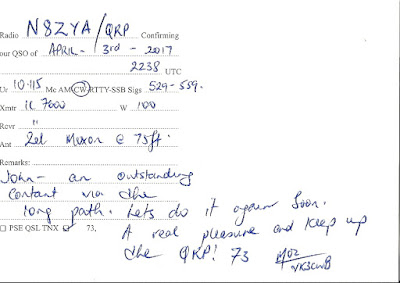 Radio N8ZYA/QRP Confirming
our QSO of APRIL - 3rd - 2017
2238 UTC
Ur 10.115 Mc AM CW RTTY-SSB Sigs 529-559.
Xmtr IC 7600 W 100
Rcvr "
Ant 2el Moxon @ 75ft.
Remarks:
John - an outstanding
contact via the
long path. Lets do it again soon.
A real pleasure and keep up
the QRP! 73
□ PSE QSL TNX □ 73,
VK3CWB